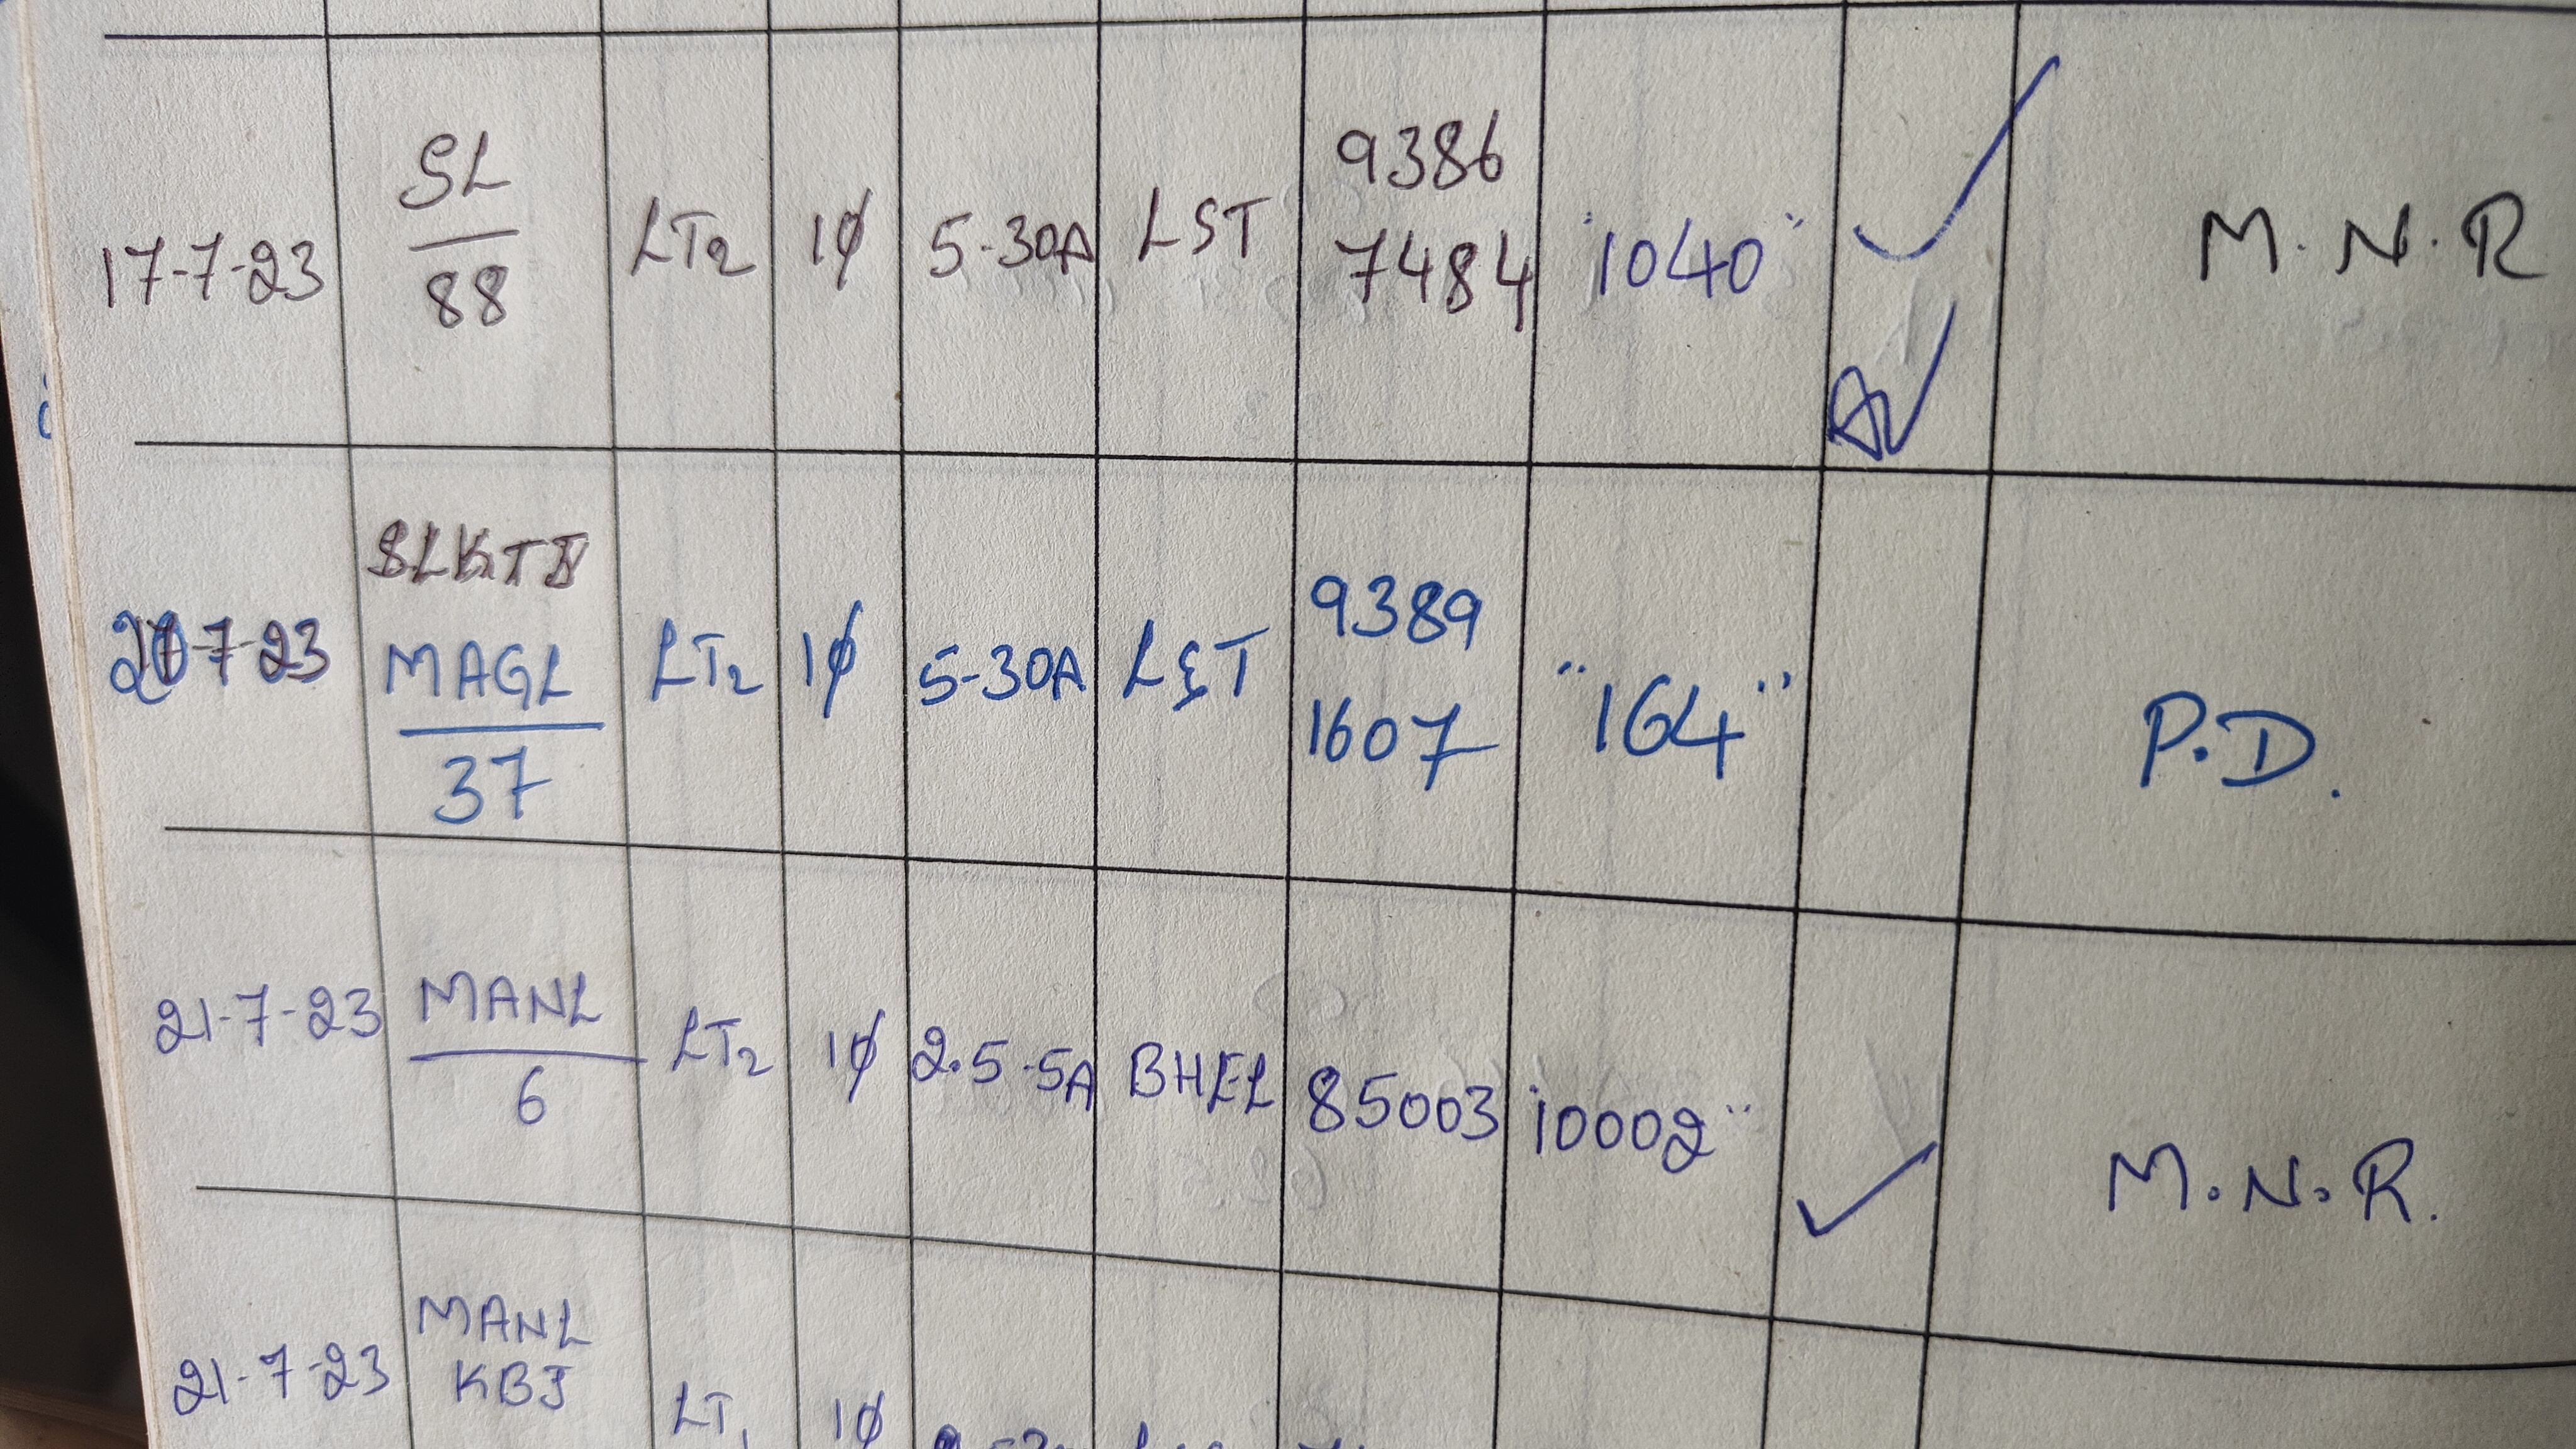 17-7-23 SL/88 LT2 1ϕ 5-30A LST 9386 7484 "1040" ✓ M.N.R
20-7-23 MAGL/37 LT2 1ϕ 5-30A LST 9389 1607 "164" P.D.
21-7-23 MANL/6 LT2 1ϕ 2.5-5A BHEL 85003 "10002" ✓ M.N.R.
21-7-23 MANL KBJ LT1 1ϕ